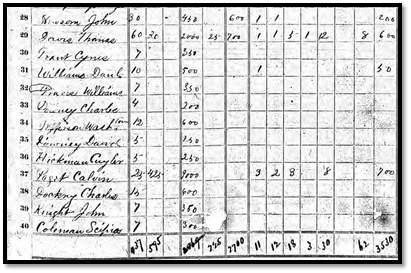 28 Newsom John 30 450 600 1 1 200
29 Davis Thomas 60 30 2000 25 700 1 1 5 1 12 8 600
30 Grant Cyrus 7 350
31 Williams Danl 10 500 1 50
32 Travis Williams 7 350
33 Downey Charles 4 200
34 Jefferson Washton 12 600
35 Downey David 5 250
36 Hickman Cuyler 5 250
37 Capt Calvin 25 425 9000 3 2 8 8 700
38 Dockry Charles 12 600
39 Knight John 7 350
40 Coleman Scipio 7 300
437 595 725 2700 11 12 18 3 30 62 3530